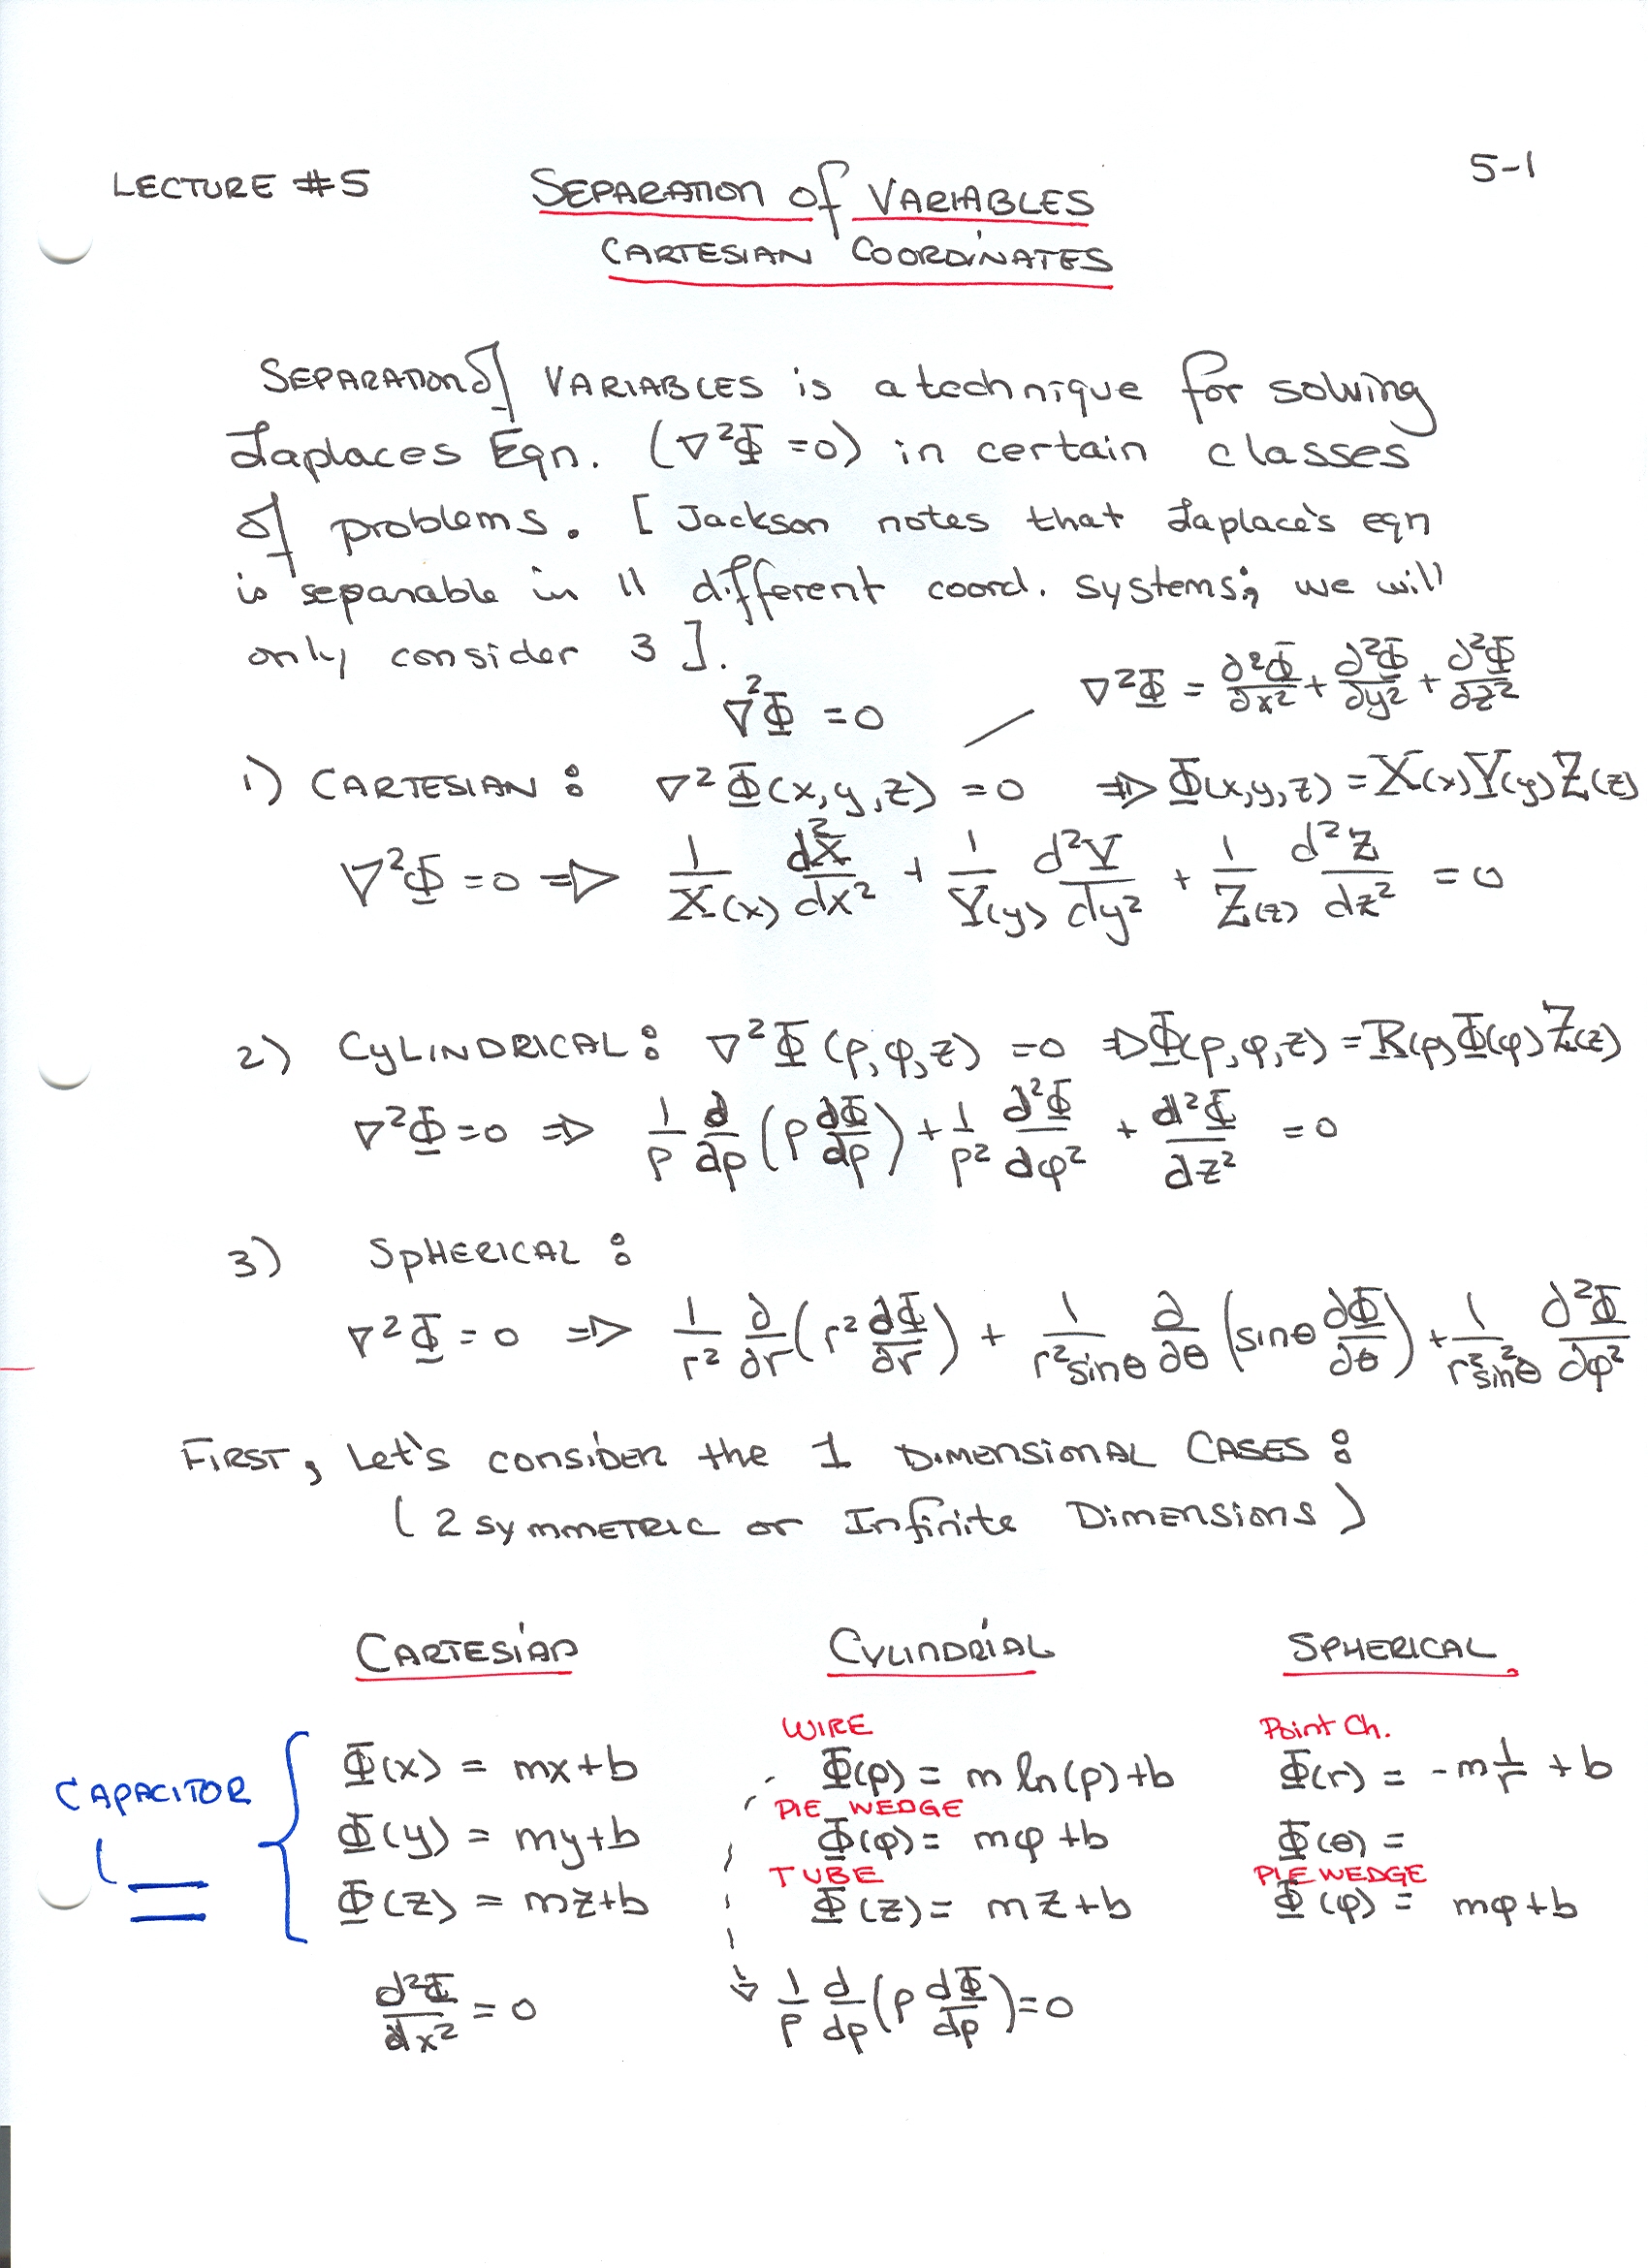 LECTURE #5
SEPARATION of VARIABLES
5-1
CARTESIAN COORDINATES
SEPARATION of VARIABLES is a technique for solving
Laplaces Eqn. (∇²Φ = 0) in certain classes
of problems. [ Jackson notes that Laplace's eqn
is separable in 11 different coord. systems; we will
only consider 3 ].
∇²Φ = 0
∇²Φ = ∂²Φ/∂x² + ∂²Φ/∂y² + ∂²Φ/∂z²
1) CARTESIAN : ∇²Φ(x,y,z) = 0 ⇒ Φ(x,y,z) = X(x)Y(y)Z(z)
∇²Φ = 0 ⇒ 1/X(x) d²X/dx² + 1/Y(y) d²Y/dy² + 1/Z(z) d²Z/dz² = 0
2) CYLINDRICAL : ∇²Φ(ρ,φ,z) = 0 ⇒ Φ(ρ,φ,z) = R(ρ)Φ(φ)Z(z)
∇²Φ = 0 ⇒ 1/ρ ∂/∂ρ (ρ ∂Φ/∂ρ) + 1/ρ² ∂²Φ/∂φ² + ∂²Φ/∂z² = 0
3) SPHERICAL :
∇²Φ = 0 ⇒ 1/r² ∂/∂r (r² ∂Φ/∂r) + 1/r²sinθ ∂/∂θ (sinθ ∂Φ/∂θ) + 1/r²sin²θ ∂²Φ/∂φ²
FIRST, Let's consider the 1 DIMENSIONAL CASES :
( 2 symmETRIC or Infinite DimENSIONS )
CARTESIAN
CYLINDRIAL
SPHERICAL
CAPACITOR
Φ(x) = mx+b
Φ(y) = my+b
Φ(z) = mz+b
d²Φ/dx² = 0
WIRE
Φ(ρ) = m ln(ρ)+b
PIE WEDGE
Φ(φ) = mφ+b
TUBE
Φ(z) = mz+b
1/ρ d/dρ (ρ dΦ/dρ) = 0
Point Ch.
Φ(r) = -m 1/r + b
Φ(θ) =
PIE WEDGE
Φ(φ) = mφ+b